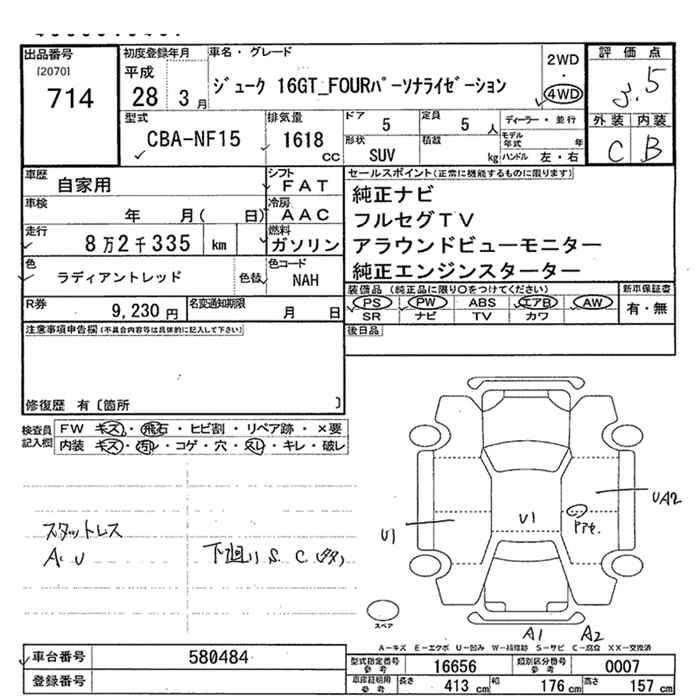 出品番号
[2070]
714
初度登録年月
平成
28 3 月
車名・グレード
ジューク 16GT_FOURパーソナライゼーション
2WD
・
4WD
評価点
3.5
外装 内装
C B
型式
CBA-NF15
排気量
1618 CC
ドア 5
定員 5 人
ディーラー・並行
形状 SUV
積載 kg
モデル年式 年
ハンドル 左・右
車歴
自家用
シフト
FAT
車検
年 月( 日)
冷房
AAC
走行
8万2千335 km
燃料
ガソリン
色
ラディアントレッド
色替
色コード
NAH
R券
9,230 円
名変通知期限
月 日
セールスポイント(正常に機能するものに限ります)
純正ナビ
フルセグTV
アラウンドビューモニター
純正エンジンスターター
装備品 (純正品に限り○をつけてください)
PS PW ABS エアB AW
SR ナビ TV カワ
新車保証書
有・無
後日品
注意事項申告欄(不具合内容等は具体的に記入して下さい)
修復歴 有〔箇所 〕
検査員
記入欄
FW キズ・飛石・ヒビ割・リペア跡・×要
内装 キズ・汚れ・コゲ・穴・スレ・キレ・破レ
スタットレス
A. U 下廻り S. C.
U1
U1
UA2
スペア
A1 A2
A-キズ E-エクボ U-凹み W-補修跡 S-サビ C-腐食 XX-交換済
車台番号
580484
登録番号
型式指定番号 参考
16656
類別区分番号 参考
0007
車庫証明用 参考
長さ 413 cm 幅 176 cm 高さ 157 cm